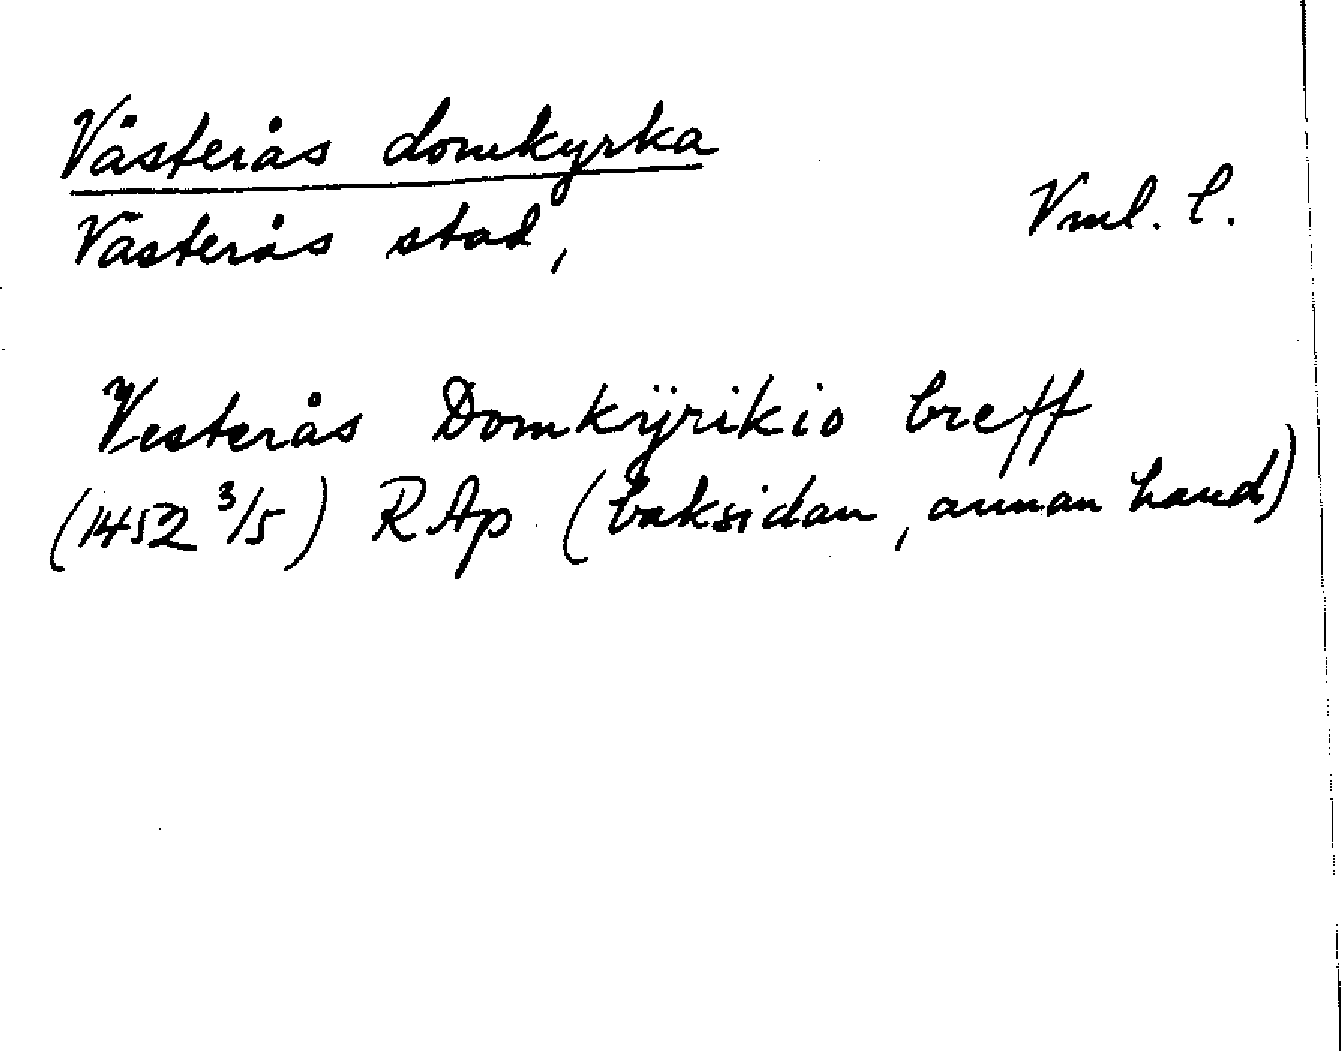 Västerås domkyrka
Västerås stad, Vml. l.
Vesterås Domkÿrikio breff
(1452 3/5) RAp (baksidan, annan hand)